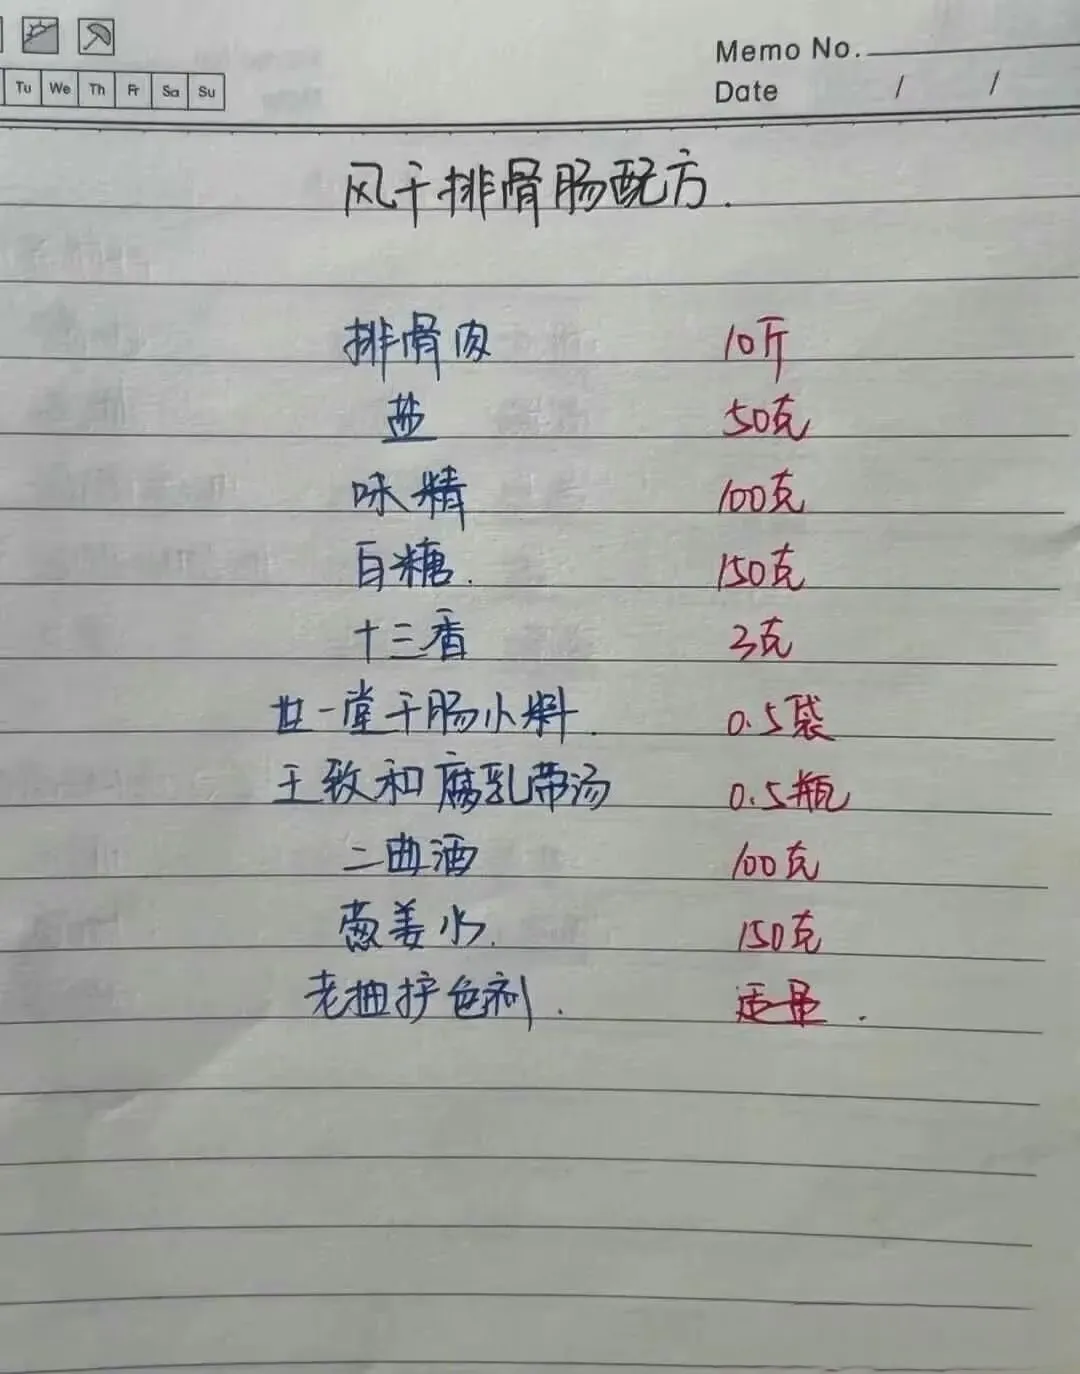 Memo No.
Tu We Th Fr Sa Su
Date / /
风干排骨肠配方.
排骨肉 10斤
盐 50克
味精 100克
白糖. 150克
十三香 3克
世一堂干肠小料. 0.5袋
王致和腐乳带汤 0.5瓶
二曲酒 100克
葱姜水. 150克
老抽护色剂. 适量.